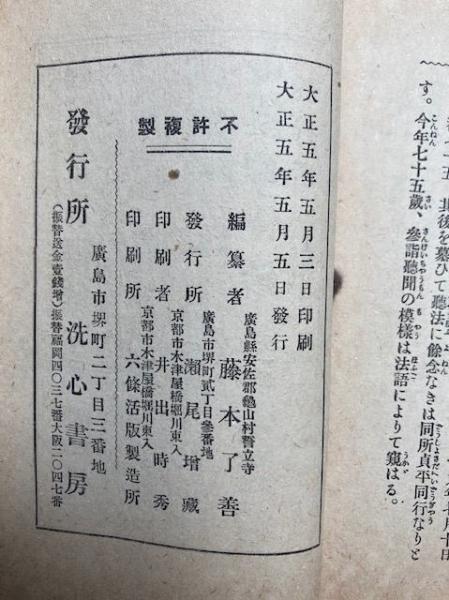 す。今年七十五歳、參詣聽聞の模樣は法語によりて窺はる。
其後を慕ひて聽法に餘念なきは同所貞平同行なりと
大正五年五月三日印刷
大正五年五月五日發行
不許複製
廣島縣安佐郡龜山村誓立寺
編纂者 藤本了善
廣島市堺町貳丁目參番地
發行所 瀨尾增藏
京都市木津屋橋堀川東入
印刷者 井出時秀
京都市木津屋橋堀川東入
印刷所 六條活版製造所
廣島市堺町二丁目三番地
發行所 洗心書房
(振替送金壹錢增)振替福岡四〇三七番大阪二〇四七番